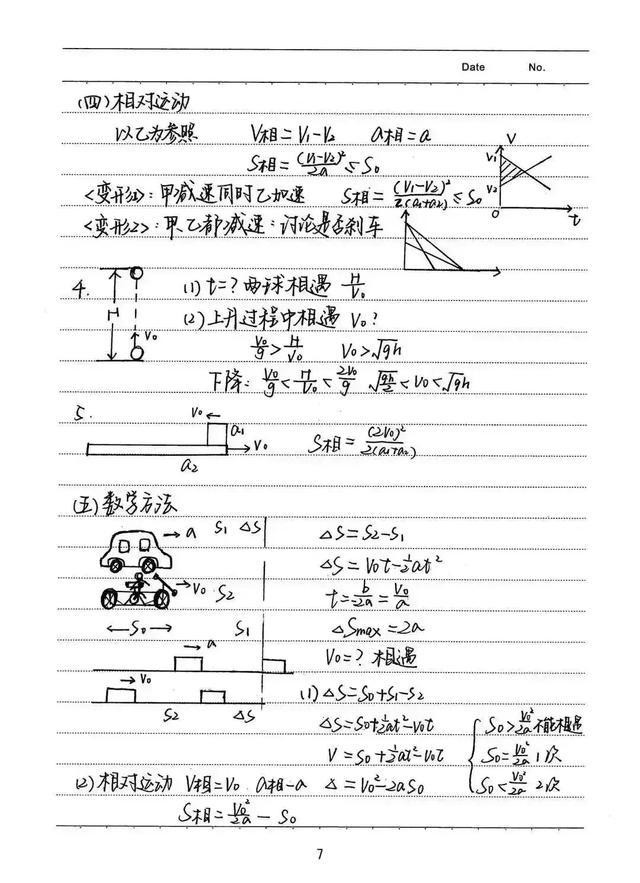 Date No.
(四)相对运动
以乙为参照 V相=V₁-V₂ a相=a
S相=(V₁-V₂)²/2a ≤ S₀
V
V₁
V₂
0 t
<变形1>:甲减速同时乙加速 S相=(V₁-V₂)²/2(a₁+a₂) ≤ S₀
<变形2>:甲.乙都减速:讨论是否刹车
4. (1) t=? 两球相遇 H/V₀
H
V₀
(2)上升过程中相遇 V₀?
V₀/g > H/V₀ V₀>√gh
下降: V₀/g < H/V₀ < 2V₀/g √(gh/2) < V₀ < √gh
5.
V₀ a₁ V₀
a₂
S相=(2V₀)²/2(a₁+a₂)
(五)数学方法
a S₁ ΔS
ΔS=S₂-S₁
V₀ S₂
ΔS=V₀t-½at²
t=b/-2a=V₀/a
S₀ S₁
ΔSmax=2a
a
V₀=? 相遇
V₀
(1) ΔS=S₀+S₁-S₂
S₂ ΔS
ΔS=S₀+½at²-V₀t
S₀>V₀²/2a 不能相遇
V=S₀+½at²-V₀t
S₀=V₀²/2a 1次
(2)相对运动 V相=V₀ a相-a Δ=V₀²-2aS₀
S₀<V₀²/2a 2次
S相=V₀²/2a - S₀
7